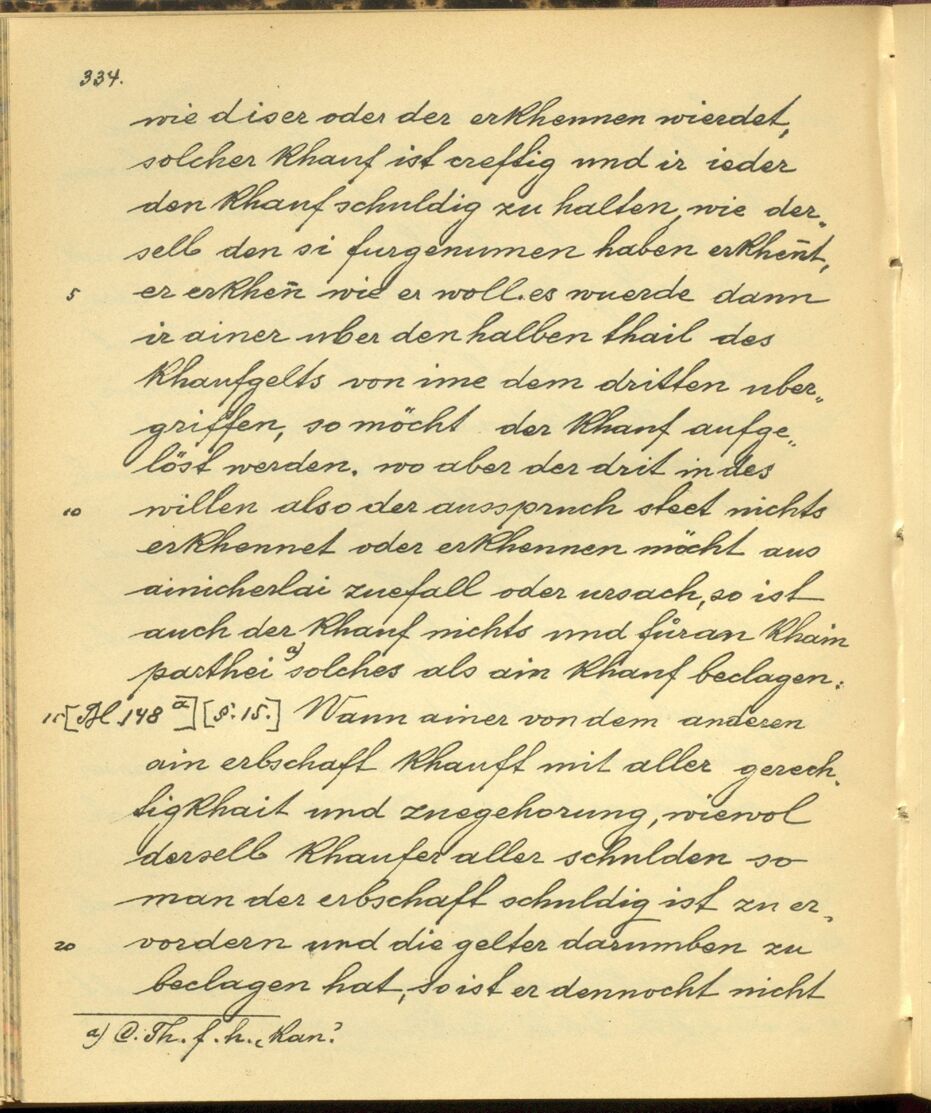 334.
wie diser oder der erkhennen wierdet,
solcher khauf ist creftig und ir ieder
den khauf schuldig zu halten, wie der„
selb den si furgenumen haben erkhen̄t,
5 er erkhen̄ wie er woll. es wuerde dann
ir ainer uber den halben thail des
khaufgelts von ime dem dritten uber„
griffen, so möcht der khauf aufge„
löst werden. wo aber der drit in des
10 willen also der ausspruch steet nichts
erkhennet oder erkhennen möcht aus
ainicherlai zuefall oder ursach, so ist
auch der khauf nichts und fůran khain
parthei a) solches als ain khauf beclagen:
15 [Bl. 148 a] [§. 15.] Wann ainer von dem anderen
ain erbschaft khauft mit aller gerech„
tigkhait und zuegehorung, wiewol
derselb khaufer aller schulden so
man der erbschaft schuldig ist zu er„
20 vordern und die gelter darumben zu
beclagen hat, so ist er dennocht nicht
a) C. Th. f. h. „kan.“